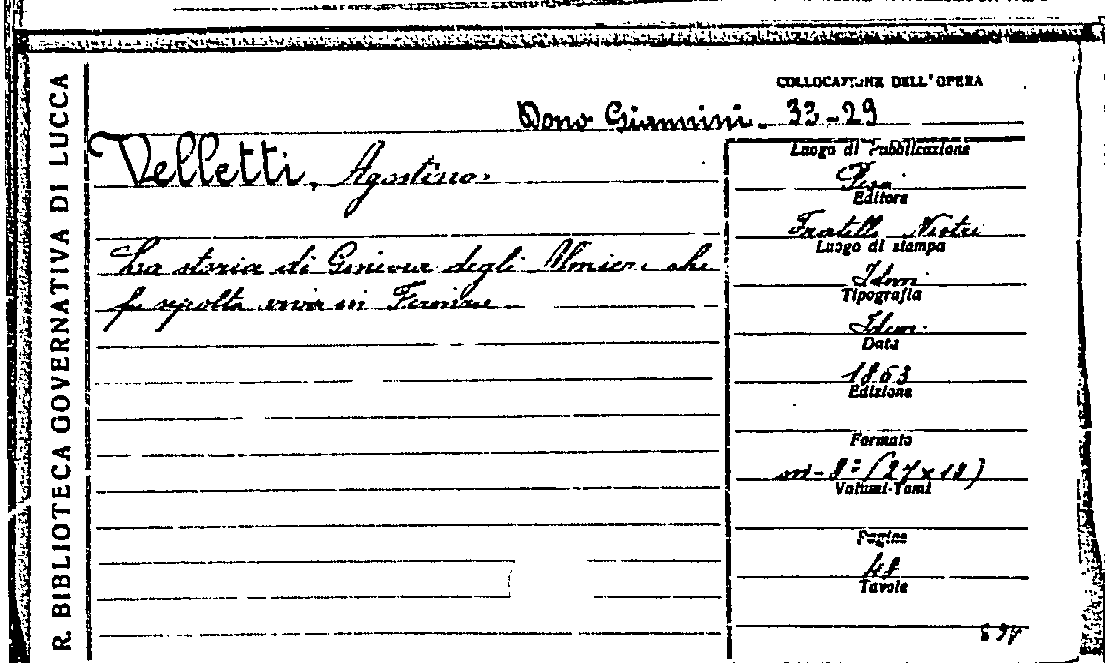 R. BIBLIOTECA GOVERNATIVA DI LUCCA
COLLOCAZIONE DELL'OPERA
Dono Giannini. 33-29
Velletti, Agostino.
La storia di Ginevra degli Almieri che
fu sepolta viva in Firenze
Luogo di Pubblicazione
Pisa
Editore
Fratelli Nistri
Luogo di stampa
Idem
Tipografia
Idem
Data
1863
Edizione
Formato
in-8º (27x18)
Volumi-Tomi
Pagine
48
Tavole